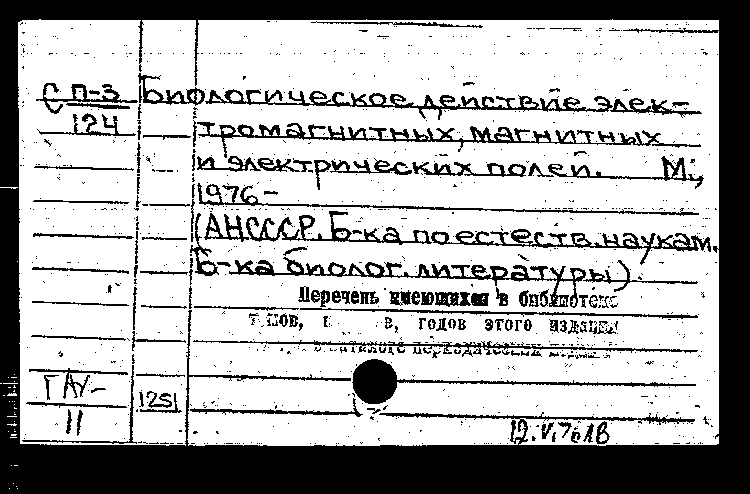 С П-3
124
Биологическое действие элек-
тромагнитных, магнитных
и электрических полей. М.,
1976-
(АНСССР. Б-ка по естеств. наукам.
Б-ка биолог. литературы).
Перечень имеющихся в библиотеке
томов, годов этого издания
ГАУ-
11
1251
12.V.76